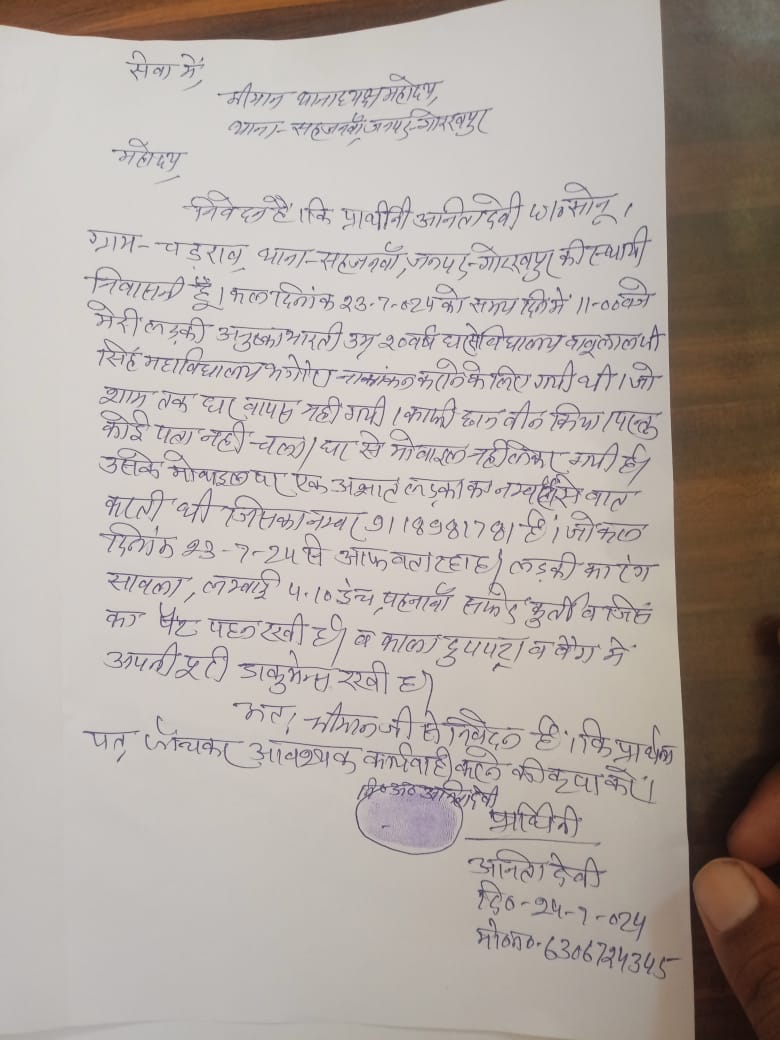 सेवा में,
श्रीमान थानाध्यक्ष महोदय,
थाना- सहजनवाँ, जनपद-गोरखपुर
महोदय,
निवेदन है। कि प्रार्थीनी अनिता देवी W/० सोनू।
ग्राम- चड़राव, थाना- सहजनवाँ, जनपद-गोरखपुर की स्थायी
निवासनी हूँ। कल दिनांक 23-7-024 को समय दिन में 11-00 बजे
मेरी लड़की अनुष्का भारती उम्र 20 वर्ष घर से विद्यालय बाबूलाल जी
सिंह महाविद्यालय नामांकन कराने के लिए गयी थी। जो
शाम तक घर वापस नही गयी। काफी छान बीन किया। परन्तु
कोई पता नही चला। घर से मोबाइल नही लेकर गयी है।
उसके मोबाइल पर एक अज्ञात लड़का का नम्बर है से बात
करती थी जिसका नम्बर 911898178 है। जो कल
दिनांक 23-7-24 से आफ बता रहा है। लड़की का रंग
सावला, लम्बाई 4.10 इन्च, पहनावाँ सफेद कुर्ता व जिंस
का पैंट पहन रखी है। व काला दुपपट्टा व बैग में
अपनी पूरी डाकुमेन्स रखी है।
अतः श्रीमान जी से निवेदन है। कि प्रार्थना
पत्र जाँचकर आवश्यक कार्यवाही करने की कृपा करें।
नि०अं० अनिता देवी
प्रार्थिनी
अनिता देवी
दि०-24-7-024
मो०न०-6306724345